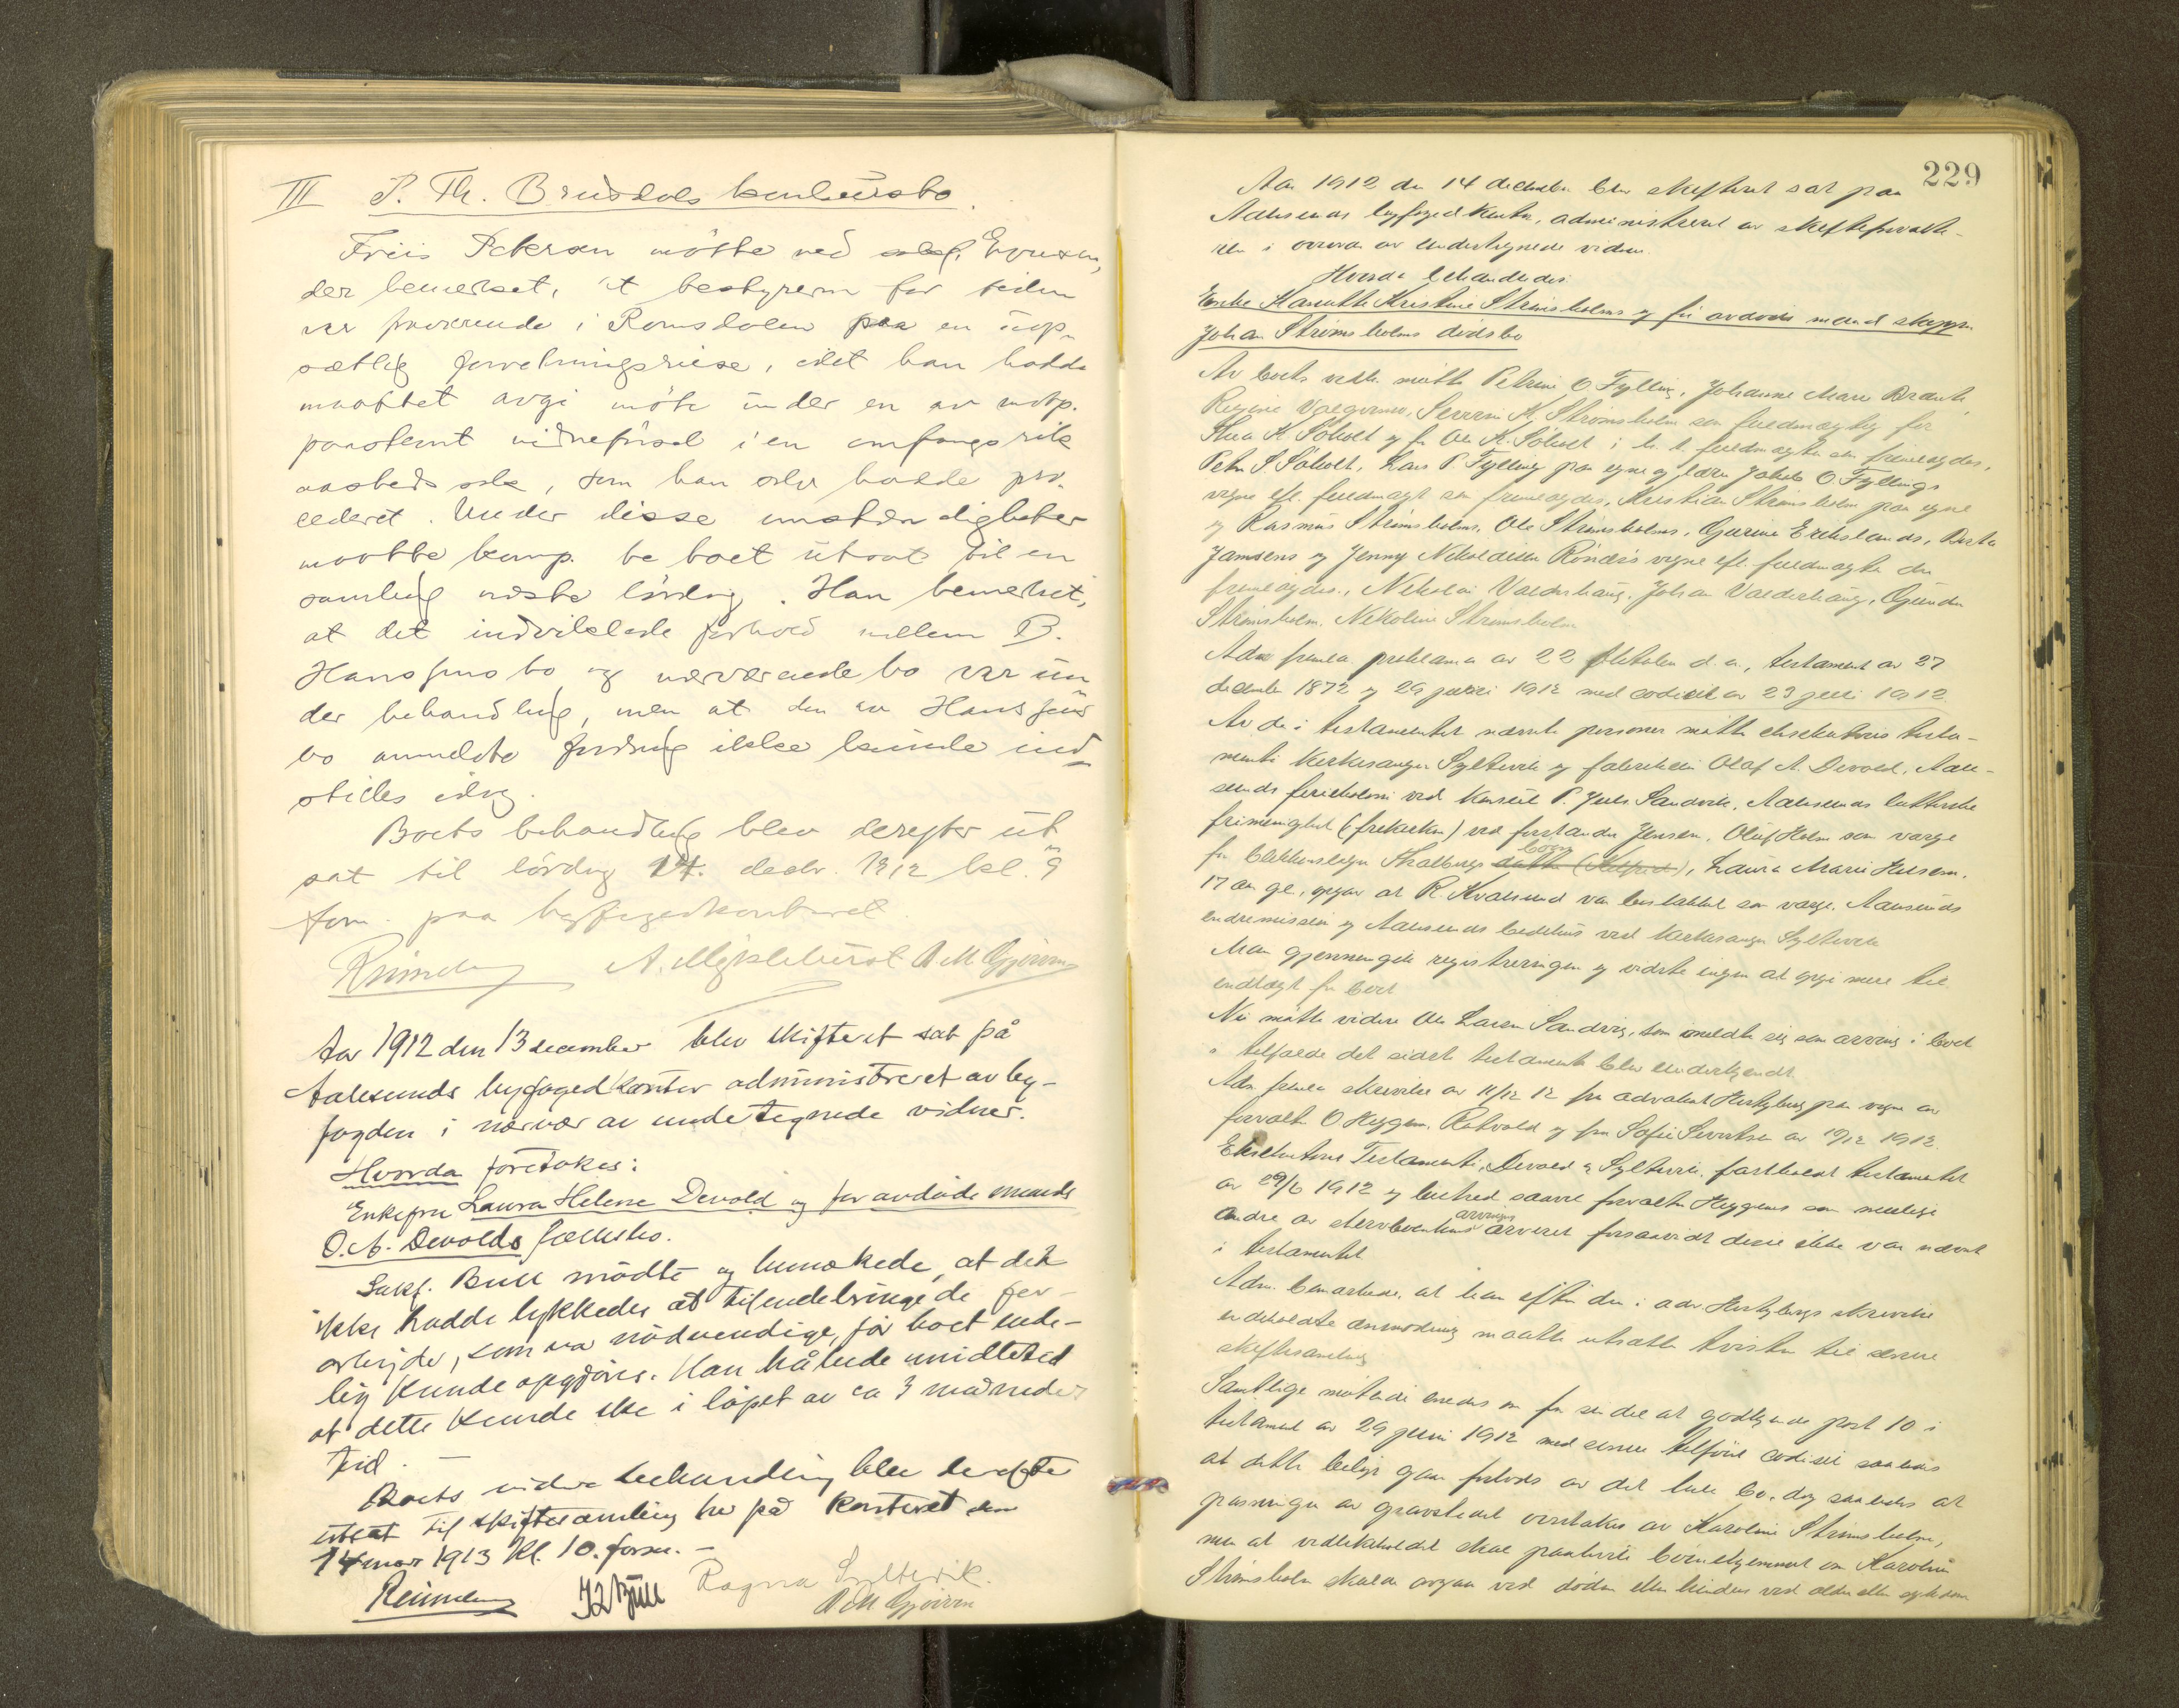 III P. Th. Brusdals konkursbo.
Friis Petersen møtte ved sakf.
der bemerket, at bestyreren for tiden
var fraværende i Romsdalen paa en uop-
sættelig forretningsreise, idet han hadde
maattet avgi møte under en av motp.
paastevnt vidneførsel i en omfangsrik
aastedssak, som han selv hadde pro-
cederet. Under disse omstændigheter
maatte komp. be boet utsat til en
samling næste lørdag. Han bemerket,
at det indviklede forhold mellem B.
Hansjens bo og nærværende bo var un
der behandling, men at den av Hansjens
bo anmeldte fordring ikke kunde ind-
stilles idag.
Boets behandling blev derefter ut
sat til lørdag 14. decbr. 1912 kl. 9
form. paa byfogedkontoret.
A. Myklebust A M Gjørven
Aar 1912 den 13 december blev skifteret sat på
Aalesunds byfogedkontor administreret av by-
fogden i nærvær av undertegnede vidner.
Hvorda foretokes:
Enkefru Laura Helene Devold og før avdøde mands
O. A. Devolds fællesbo.
Sakf. Bull mødte og bemerkede, at det
ikke hadde lykkedes at tilendebringe de for-
arbeider, som var nødvendige, før boet ende-
lig kunde opgjøres. Han håbede imidlertid
at dette kunde ske i løpet av ca 3 måneders
tid. —
Boets videre behandling blev derefter
utsat til skiftesamling her på kontoret den
14 mars 1913 kl. 10. form. —
Ragna Sylterik.
A M Gjørven
229
Aar 1912 den 14 december blev skifteret sat paa
Aalesunds byfogedkontor, administreret av skifteforvalte-
ren i overvær av undertegnede vidner.
Hvorda behandledes
Enke Karoline Kristine Strømsholms og før avdøde mand skipper
Johan Strømsholms dødsbo
Av boets vedk. møtte Petrine O Fylling, Johanne Marie Brante,
Regine, Severin K. Strømsholm som fuldmægtig for
K Søholt og for Ole K. Søholt i h. t. fuldmagter som fremlagdes,
Peter S. Søholt, Lars P. Fylling paa egne og Jakob O. Fyllings
vegne efl. fuldmagt som fremlagdes, Kristian Strømsholm paa egne
og Rasmus Strømsholms, Ole Strømsholms, Gurine Erikslands, Berte
Jansens og Jenny Nikoldine vegne efl. fuldmagter der
fremlagdes, Nikolai Valderhaug, Johan Valderhaug,
Strømsholm, Nikoline Strømsholm
Adm fremla proklama av 22 oktober d. a., testament av 27
december 1872 og 29 juni 1912 med codicil av 23 juli 1912.
Av de i testamentet nævnte personer møtte eksekutores testa-
menti kirkesanger Sylterik og fabrikeier Olaf A. Devold, Aale-
sunds feriekoloni ved konsul P. Juls Sandvik, Aalesunds lutherske
frimenighet (frikirken) ved forstander Jensen, Oluf Holm som værge
for blikkenslager Skalbergs barn, Laura Marie Hessen,
17 aar gl., opgav at R. Kvalsund var beskikket som værge. Aalesunds
indremission og Aalesunds bedehus ved kirkesanger Sylterik
Man gjennemgik registreringen og vidste ingen at opgi mere til
indtægt for boet
Nu møtte videre Ole Larsen Sandvig, som meldte sig som arving i boet
i tilfælde det sidste testamente blev underkjendt.
Adm. fremla skrivelse av 11/12 12 fra advokat Hertzberg paa vegne av
forvalter O Heggem, Røtvold og fra Sofie Sivertsen av 1912.
Eksekutores Testamenti, Devold & Sylterik, fastholdt testamentet
av 29/6 1912 og bestred saavel forvalter Heggems som mulige
andre av stervboenkens arvinger arveret forsaavidt disse ikke var nævnt
i testamentet
Adm. bemerkede, at han efter den i adv. Hertzbergs skrivelse
indeholdte anmodning maatte utsætte tvisten til senere
skiftesamling
Samtlige møtende enedes om for sin del at godkjende post 10 i
testament av 29 juni 1912 med senere tilføiet codicil saaledes
at dette beløp gaar forlods av det hele bo, dog saaledes at
pasningen av gravstedet overtakes av Karoline Strømsholm,
men at vedlikeholdet skal paahvile om Karoline
Strømsholm skulde avgaa ved døden eller hindres ved alder eller sykdom